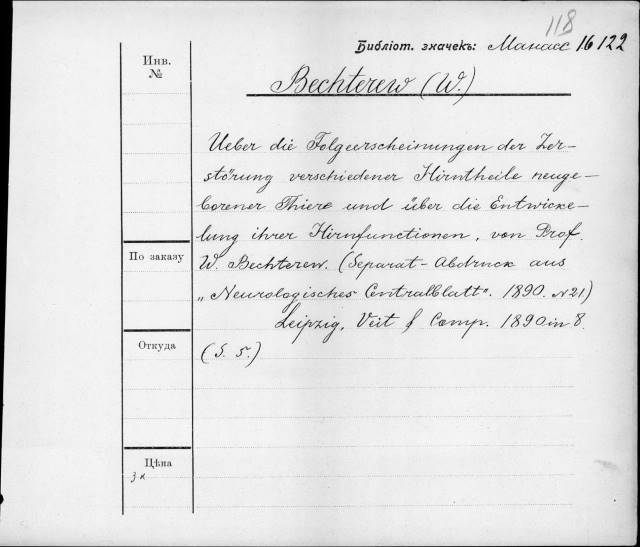 118
Библіот. значекъ: Манасс 16122
Инв.
№
Bechterew (W.)
Ueber die Folgeerscheinungen der Zer-
störung verschiedener Hirntheile neuge-
borener Thiere und über die Entwicke-
lung ihrer Hirnfunctionen, von Prof.
По заказу
W. Bechterew. (Separat-Abdruck aus
„Neurologisches Centralblatt". 1890. N 21)
Leipzig, Veit & Comp. 1890 in 8.
Откуда
(S. 5.)
Цѣна
3 к